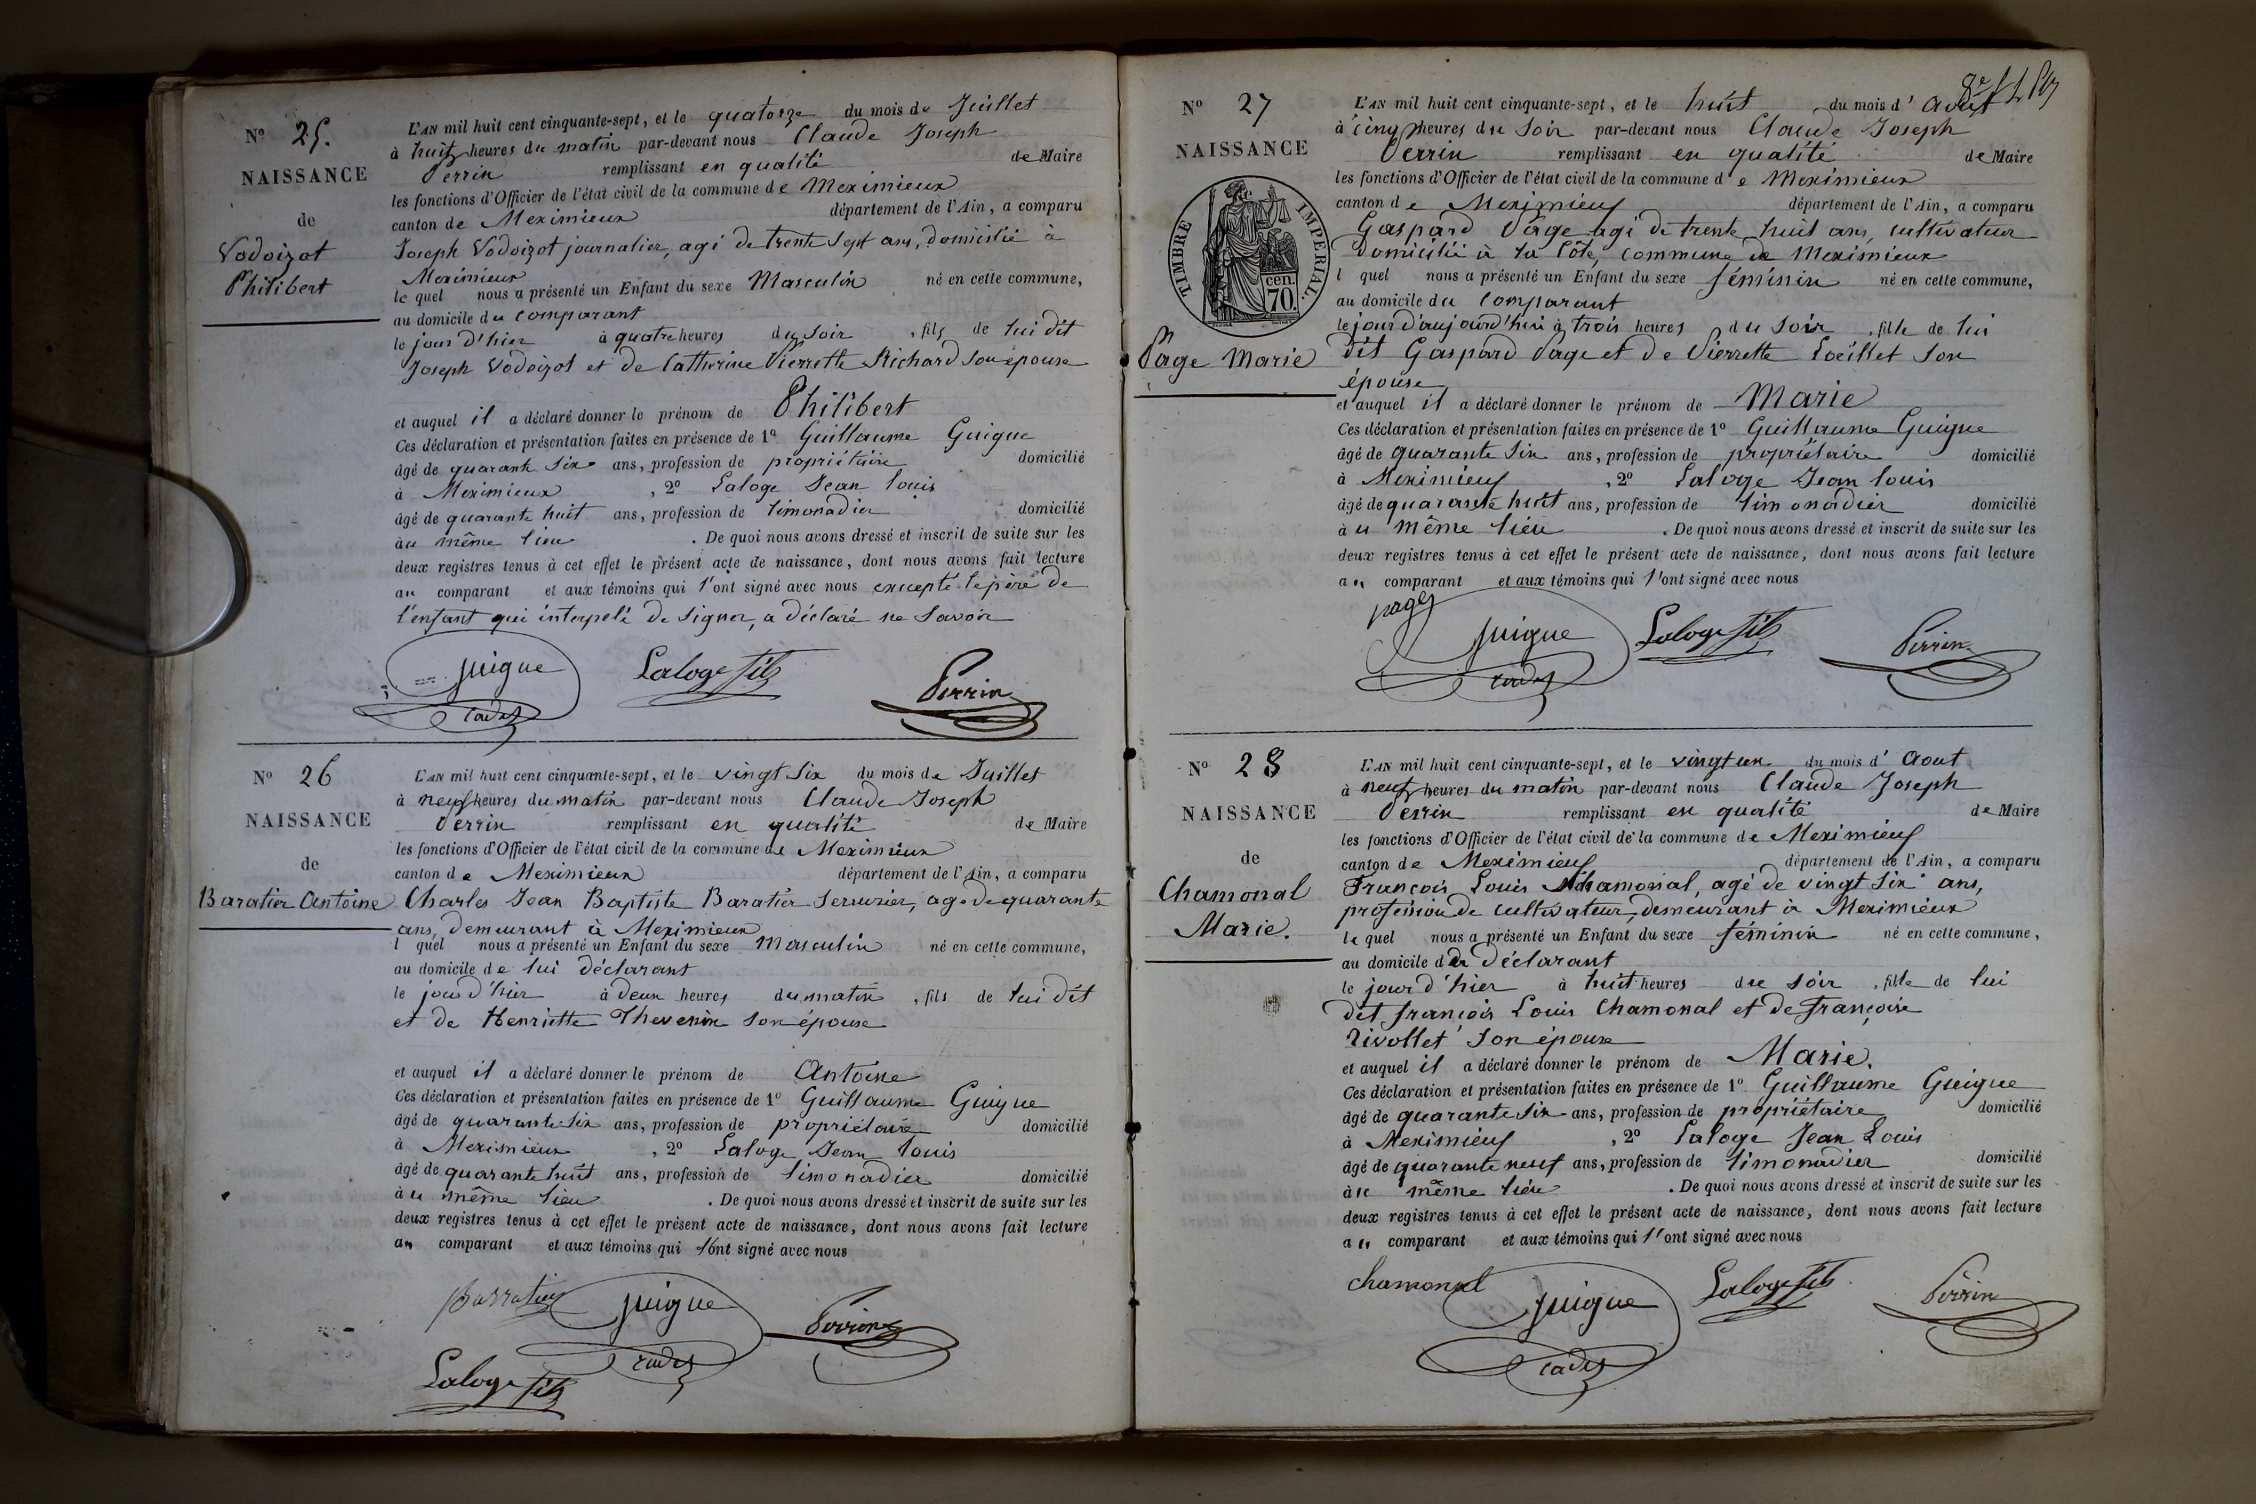 N° 25.
NAISSANCE
de
Vodoizot
Philibert
L'AN mil huit cent cinquante-sept, et le quatorze du mois de Juillet
à huit heures du matin par-devant nous Claude Joseph
Perrin remplissant en qualité de Maire
les fonctions d'Officier de l'état civil de la commune de Meximieux
canton de Meximieux département de l'Ain, a comparu
Joseph Vodoizot journalier, agé de trente sept ans, domicilié à
Meximieux
lequel nous a présenté un Enfant du sexe Masculin né en cette commune,
au domicile du comparant
le jour d'hier à quatre heures du soir, fils de lui dit
Joseph Vodoizot et de Catherine Pierrette Richard son épouse
et auquel il a déclaré donner le prénom de Philibert
Ces déclaration et présentation faites en présence de 1° Guillaume Guigue
âgé de quarante six ans, profession de propriétaire domicilié
à Meximieux, 2° Laloge Jean Louis
âgé de quarante huit ans, profession de limonadier domicilié
au même lieu. De quoi nous avons dressé et inscrit de suite sur les
deux registres tenus à cet effet le présent acte de naissance, dont nous avons fait lecture
au comparant et aux témoins qui l'ont signé avec nous excepté le père de
l'enfant qui interpelé de signer, a déclaré ne savoir
guigue Laloge fils Perrin
cadet
N° 26
NAISSANCE
de
Baratier Antoine
L'AN mil huit cent cinquante-sept, et le vingt six du mois de Juillet
à neuf heures du matin par-devant nous Claude Joseph
Perrin remplissant en qualité de Maire
les fonctions d'Officier de l'état civil de la commune de Meximieux
canton de Meximieux département de l'Ain, a comparu
Charles Jean Baptiste Baratier serrurier, agé de quarante
ans, demeurant à Meximieux
l quel nous a présenté un Enfant du sexe masculin né en cette commune,
au domicile de lui déclarant
le jour d'hier à deux heures du matin, fils de lui dit
et de Henriette Thevenin son épouse
et auquel il a déclaré donner le prénom de Antoine
Ces déclaration et présentation faites en présence de 1° Guillaume Guigue
âgé de quarante six ans, profession de propriétaire domicilié
à Meximieux, 2° Laloge Jean Louis
âgé de quarante huit ans, profession de limonadier domicilié
au même lieu. De quoi nous avons dressé et inscrit de suite sur les
deux registres tenus à cet effet le présent acte de naissance, dont nous avons fait lecture
au comparant et aux témoins qui l'ont signé avec nous
Barratier guigue Perrin
cadet
Laloge fils
N° 27
NAISSANCE
TIMBRE IMPERIAL.
cen.
70.
Page Marie
L'AN mil huit cent cinquante-sept, et le huit du mois d'Août
à cinq heures du soir par-devant nous Claude Joseph
Perrin remplissant en qualité de Maire
les fonctions d'Officier de l'état civil de la commune de Meximieux
canton de Meximieux département de l'Ain, a comparu
Gaspard Page agé de trente huit ans, cultivateur
domicilié à la Côte, commune de Meximieux
l quel nous a présenté un Enfant du sexe féminin né en cette commune,
au domicile du comparant
le jour d'aujourd'hui à trois heures du soir, fille de lui
dit Gaspard Page et de Pierrette Loeillet son
épouse
et auquel il a déclaré donner le prénom de Marie
Ces déclaration et présentation faites en présence de 1° Guillaume Guigue
âgé de quarante six ans, profession de propriétaire domicilié
à Meximieux, 2° Laloge Jean Louis
âgé de quarante huit ans, profession de limonadier domicilié
au même lieu. De quoi nous avons dressé et inscrit de suite sur les
deux registres tenus à cet effet le présent acte de naissance, dont nous avons fait lecture
au comparant et aux témoins qui l'ont signé avec nous
page guigue Laloge fils Perrin
cadet
N° 28
NAISSANCE
de
Chamonal
Marie.
L'AN mil huit cent cinquante-sept, et le vingt un du mois d'Aout
à neuf heures du matin par-devant nous Claude Joseph
Perrin remplissant en qualité de Maire
les fonctions d'Officier de l'état civil de la commune de Meximieux
canton de Meximieux département de l'Ain, a comparu
François Louis Chamonal, agé de vingt six ans,
profession de cultivateur, demeurant à Meximieux
lequel nous a présenté un Enfant du sexe féminin né en cette commune,
au domicile du déclarant
le jour d'hier à huit heures du soir, fille de lui
dit françois Louis Chamonal et de françoise
Rivollet son épouse
et auquel il a déclaré donner le prénom de Marie.
Ces déclaration et présentation faites en présence de 1° Guillaume Guigue
âgé de quarante six ans, profession de propriétaire domicilié
à Meximieux, 2° Laloge Jean Louis
âgé de quarante neuf ans, profession de limonadier domicilié
au même lieu. De quoi nous avons dressé et inscrit de suite sur les
deux registres tenus à cet effet le présent acte de naissance, dont nous avons fait lecture
au comparant et aux témoins qui l'ont signé avec nous
chamonal guigue Laloge fils Perrin
cadet